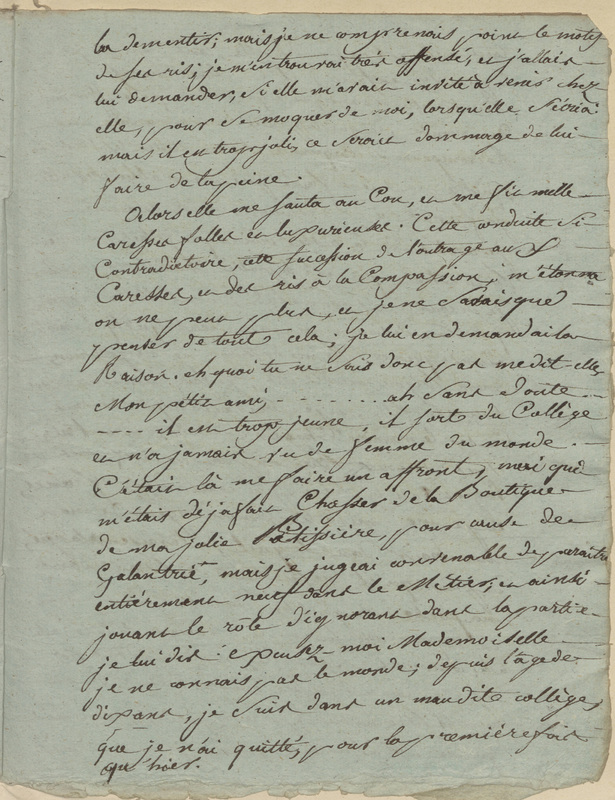 la dementir; mais je ne comprenois point le motif
de ses ris; je m'en trouvai très offensé, et j'allais
lui demander, si elle m'avait invité à venir chez
elle, pour se moquer de moi, lorsqu'elle s'écria:
mais il est trop joli, ce seroit dommage de lui
faire de la peine.
Alors elle me sauta au Cou, et me fit mille
Caresses folles et luxurieuses. Cette conduite si
Contradictoire, cette succession de l'outrage aux
Caresses, et des ris à la Compassion, m'étonna
on ne peut plus, et je ne savais que
penser de tout cela; je lui en demandai la
Raison. eh quoi tu ne sais donc pas me dit-elle
Mon petit ami, - - - - - - - - ah sans doute - -
- - - - il est trop jeune, il sort du Collège
et n'a jamais vu de femme du monde. -
C'était là me faire un affront, moi qui
m'étais déja fait Chasser de la Boutique
de ma jolie Pâtissière, pour cause de
Galantrie, mais je jugeai convenable de paraitre
entiérement neuf dans le Métier, et ainsi
jouant le rôle d'ignorant dans la partie
je lui dis: excusez moi Mademoiselle
je ne connais pas le monde; depuis l'age de
dix ans, je suis dans un maudit collège,
que je n'ai quitté, pour la première fois
qu'hier.